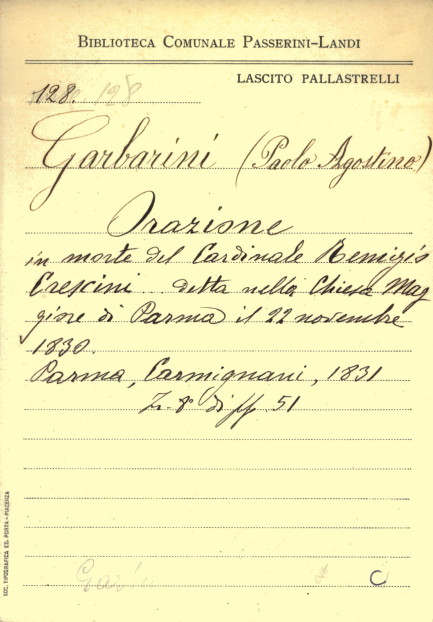 BIBLIOTECA COMUNALE PASSERINI-LANDI
LASCITO PALLASTRELLI
128. 128
Garbarini (Paolo Agostino)
Orazione
in morte del Cardinale Remigio
Crescini .. detta nella Chiesa Mag
giore di Parma il 22 novembre
1830.
Parma, Carmignani, 1831
In 8° di ff. 51
SOC. TIPOGRAFICA ED. PORTA - PIACENZA
C